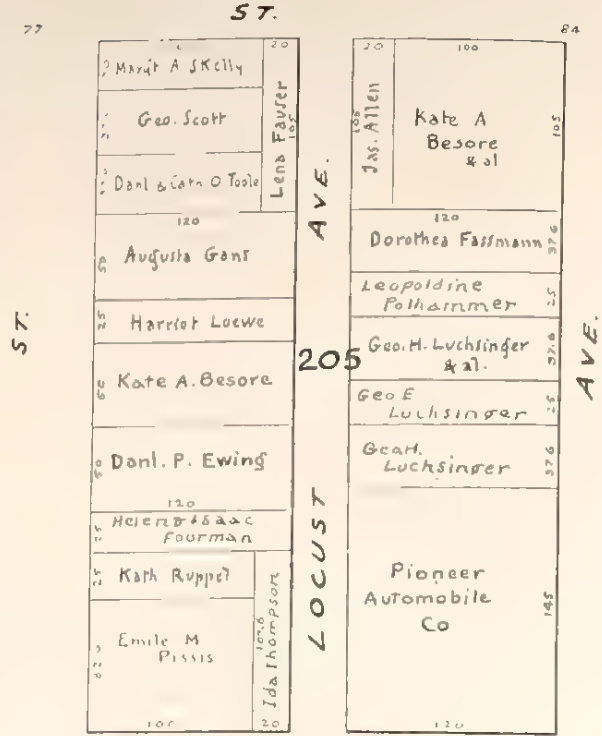 ST.
77
84
20
Margt A Skelly
Geo. Scott
Danl & Cath O Toole
Lena Fauser
105
120
50
Augusta Gans
25
Harriet Loewe
50
Kate A. Besore
50
Danl. P. Ewing
120
25
Helen & Isaac
Fourman
25
Kath Ruppel
Emile M
Pissis
100
Ida Thompson
107.6
20
ST.
AVE.
205
LOCUST
20
100
105
Jas. Allen
Kate A
Besore
& al
105
120
Dorothea Fassmann
37.6
Leopoldine
Polhammer
25
Geo. H. Luchsinger
& al.
37.6
Geo E
Luchsinger
25
Geo H.
Luchsinger
37.6
Pioneer
Automobile
Co
145
120
AVE.